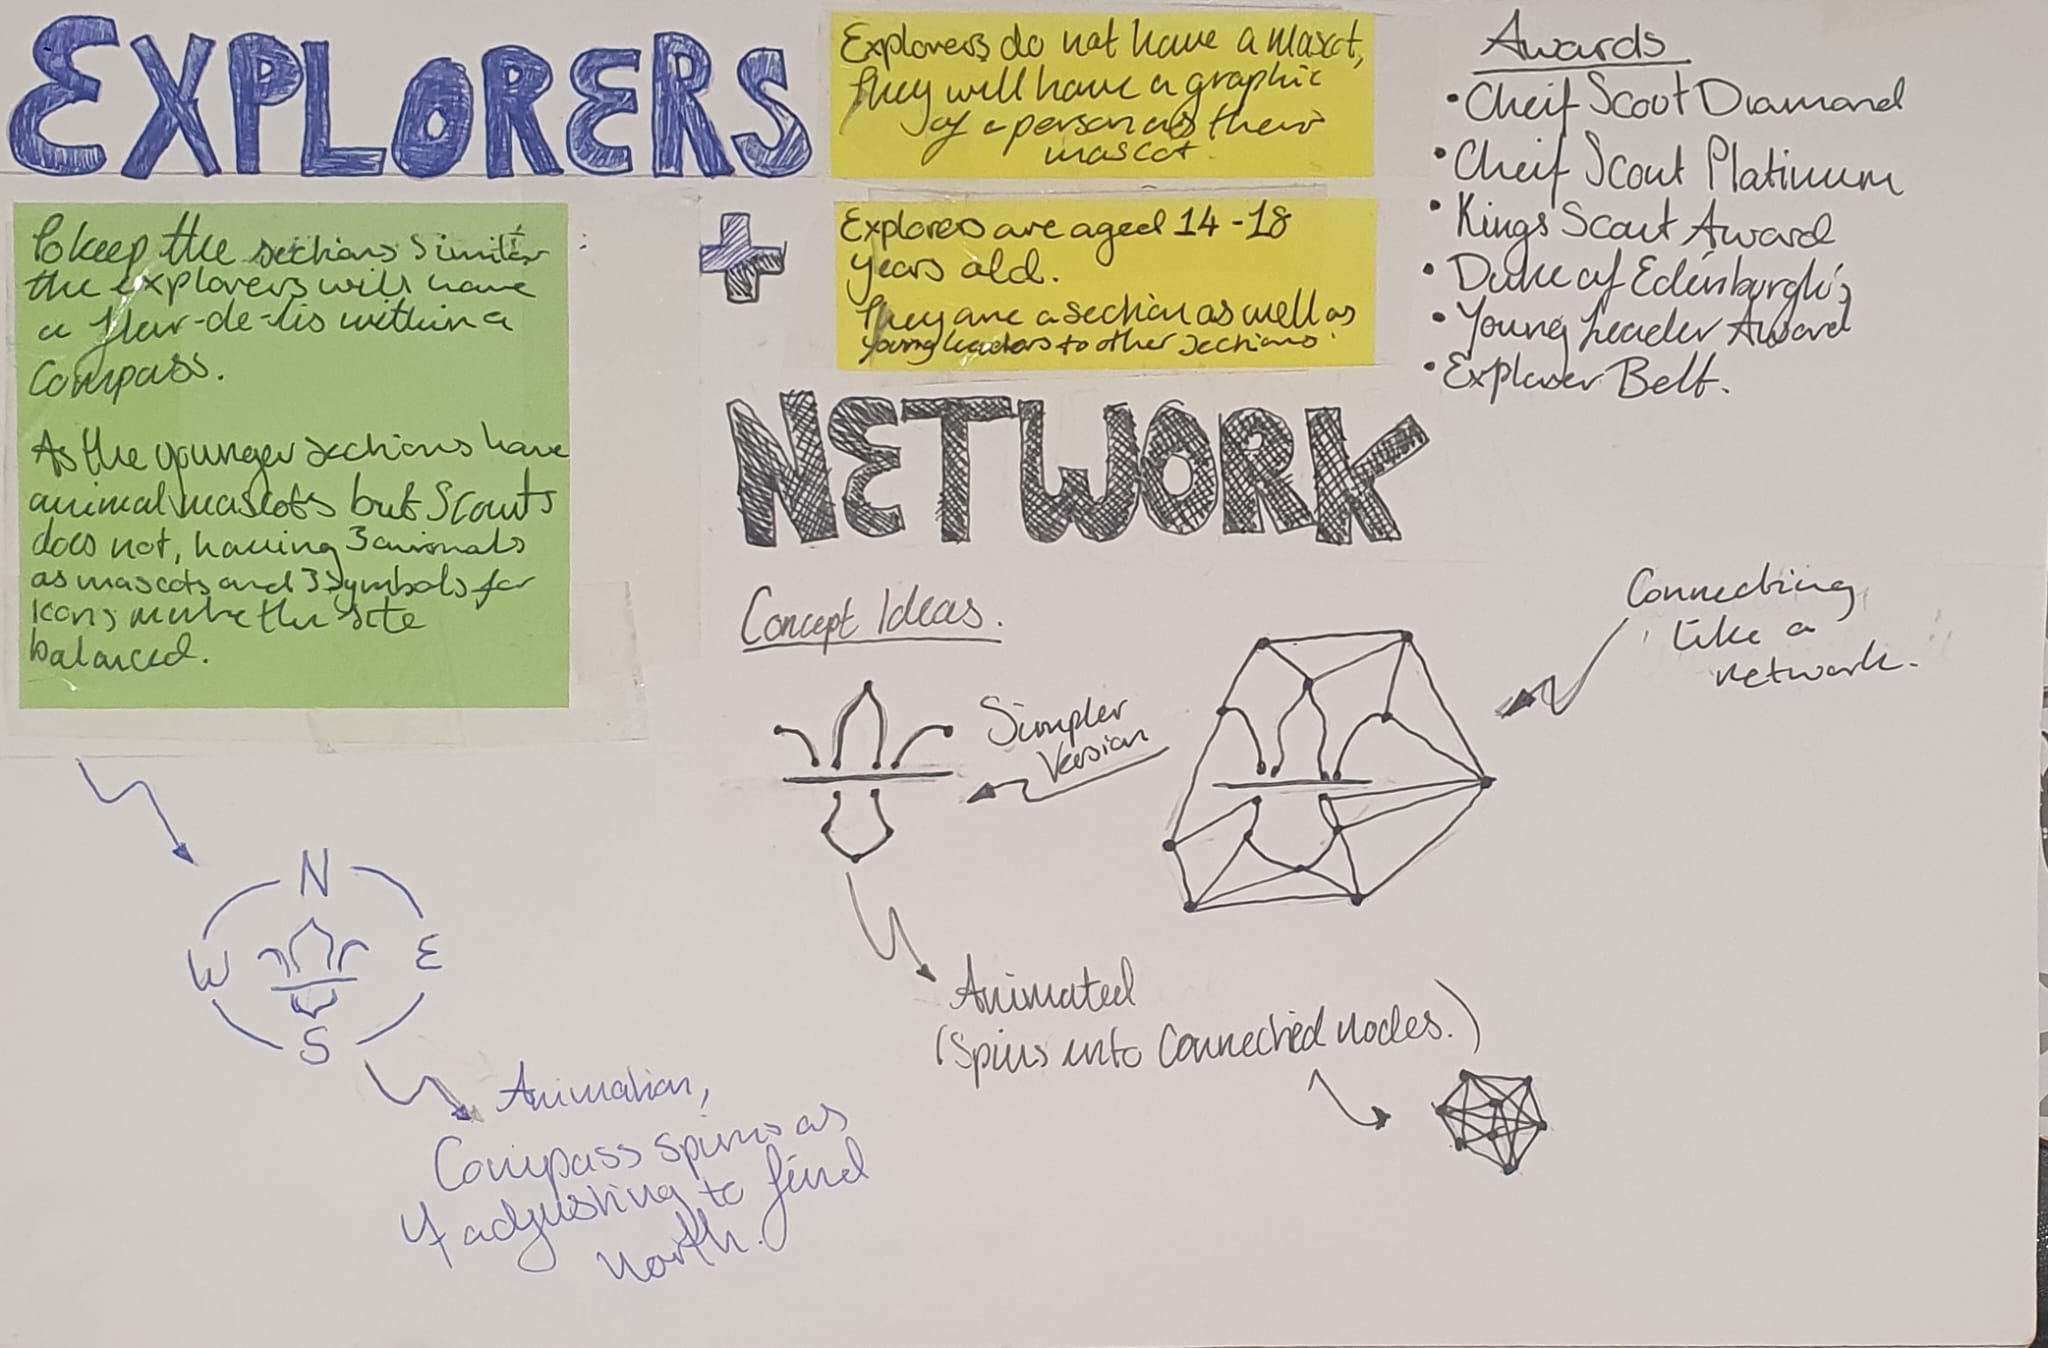 EXPLORERS
Explorers do not have a mascot,
they will have a graphic
of a person as their
mascot.
Awards
• Cheif Scout Diamond
• Cheif Scout Platinum
• Kings Scout Award
• Duke of Edinburgh's
• Young Leader Award
• Explorer Belt.
To keep the sections similar
the explorers will have
a fleur-de-lis within a
compass.
As the younger sections have
animal mascots but Scouts
does not, having 3 animals
as mascots and 3 symbols for
icons make the site
balanced.
+
Explorers are aged 14-18
years old.
They are a section as well as
young leaders to other sections.
NETWORK
Concept Ideas.
Simpler
Version
Connecting
like a
network.
N
W
E
S
Animation,
Compass spins as
if adjusting to find
north.
Animated
(Spins into connected nodes.)